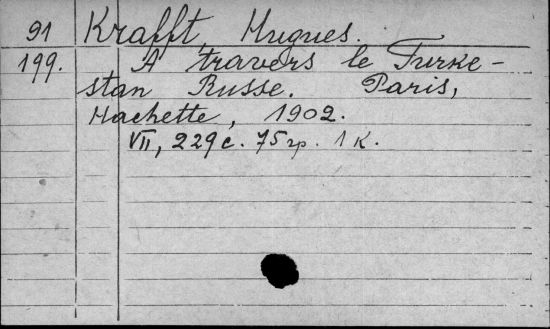 91 Krafft, Hugues.
199. A travers le Turke-
stan Russe. Paris,
Hachette, 1902.
VII, 229 с. 75 гр. 1 к.